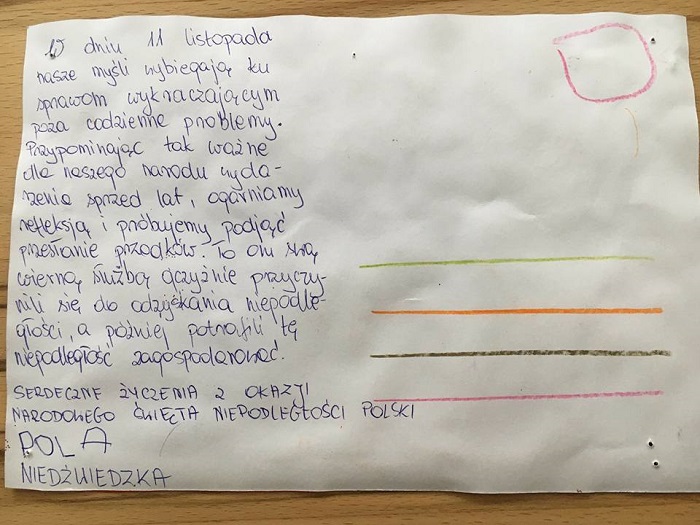 W dniu 11 listopada
nasze myśli wybiegają ku
sprawom wykraczającym
poza codzienne problemy.
Przypominając tak ważne
dla naszego narodu wyda-
rzenia sprzed lat, ogarniamy
refleksją i próbujemy podjąć
przesłanie przodków. To oni swą
wierną służbą ojczyźnie przyczy-
nili się do odzyskania niepodle-
głości, a później potrafili tę
niepodległość zagospodarować.
SERDECZNE ŻYCZENIA Z OKAZJI
NARODOWEGO ŚWIĘTA NIEPODLEGŁOŚCI POLSKI
POLA
NIEDŹWIEDZKA